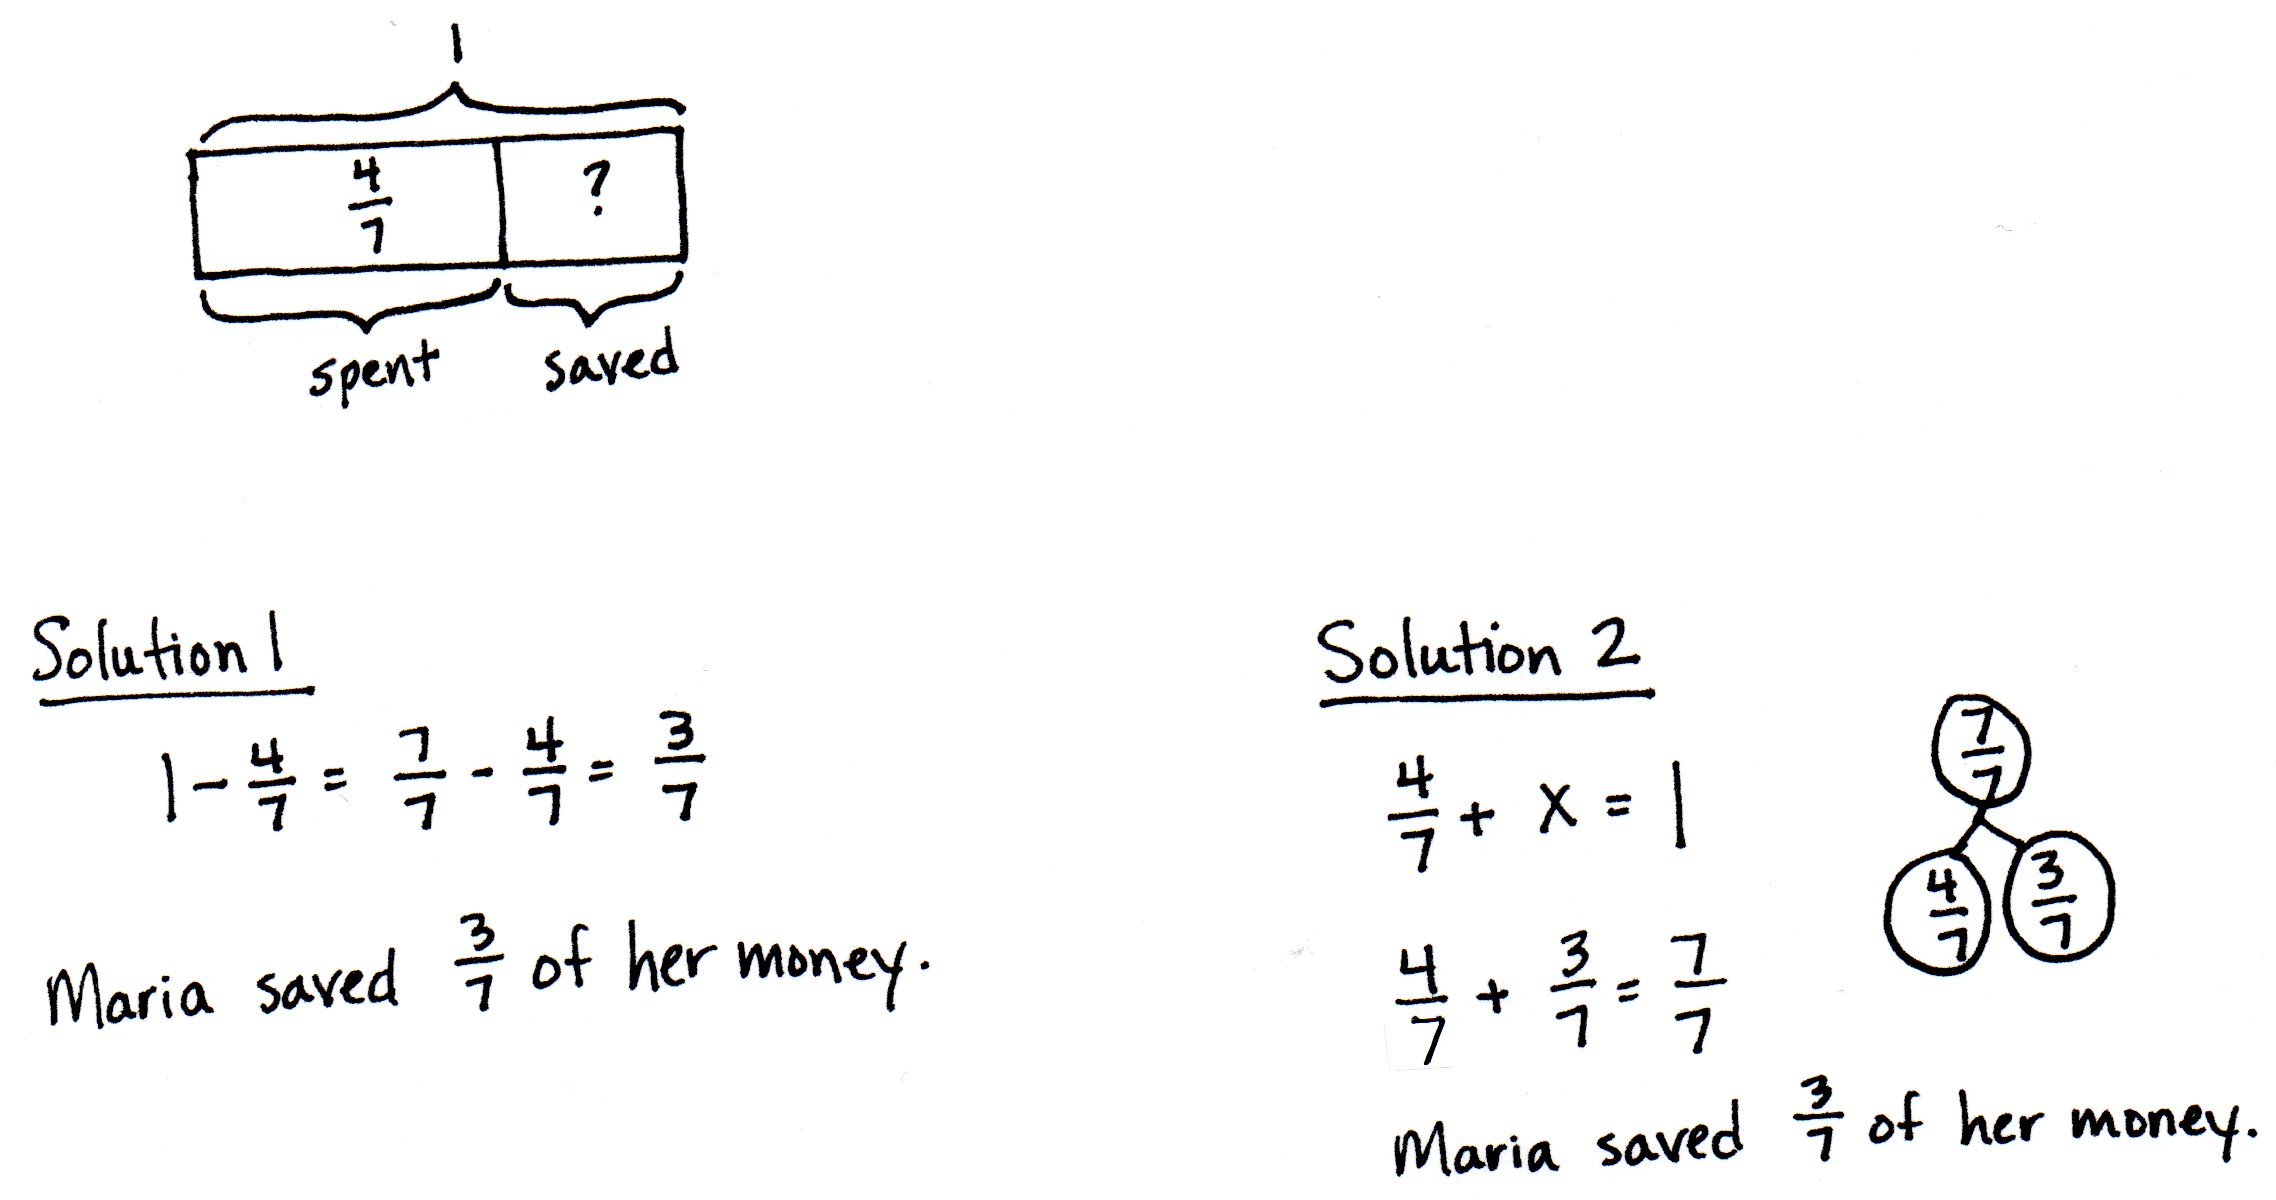 1
4/7 ?
spent saved
Solution 1
1 - 4/7 = 7/7 - 4/7 = 3/7
Maria saved 3/7 of her money.
Solution 2
4/7 + x = 1
4/7 + 3/7 = 7/7
7/7
4/7 3/7
Maria saved 3/7 of her money.